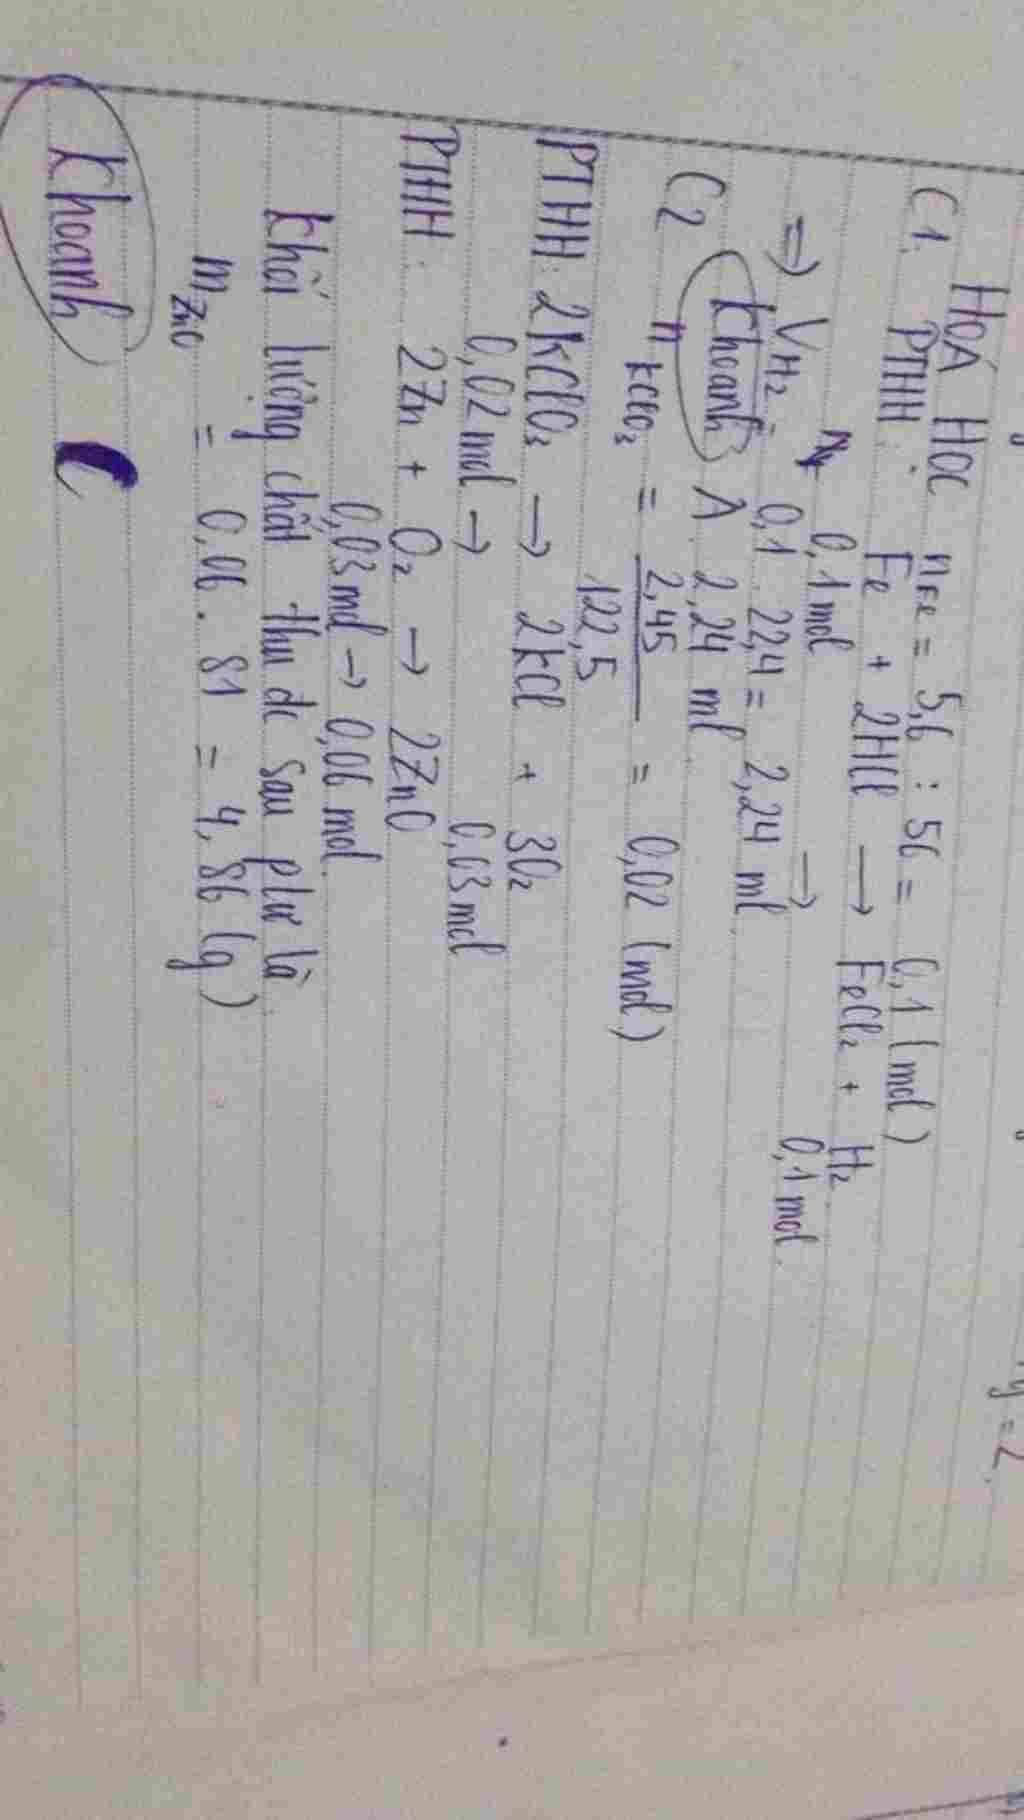 HOÁ HỌC
C1. nFe = 5,6 : 56 = 0,1 (mol)
PTHH: Fe + 2HCl → FeCl2 + H2
0,1 mol → 0,1 mol.
⇒ VH2 = 0,1 . 22,4 = 2,24 ml.
Khoanh A. 2,24 ml.
C2 nKClO3 = 2,45 / 122,5 = 0,02 (mol)
PTHH: 2KClO3 → 2KCl + 3O2
0,02 mol → 0,03 mol
PTHH: 2Zn + O2 → 2ZnO
0,03 mol → 0,06 mol.
Khối lượng chất thu dc sau pư là
mZnO = 0,06 . 81 = 4,86 (g)
Khoanh C
y = 2.